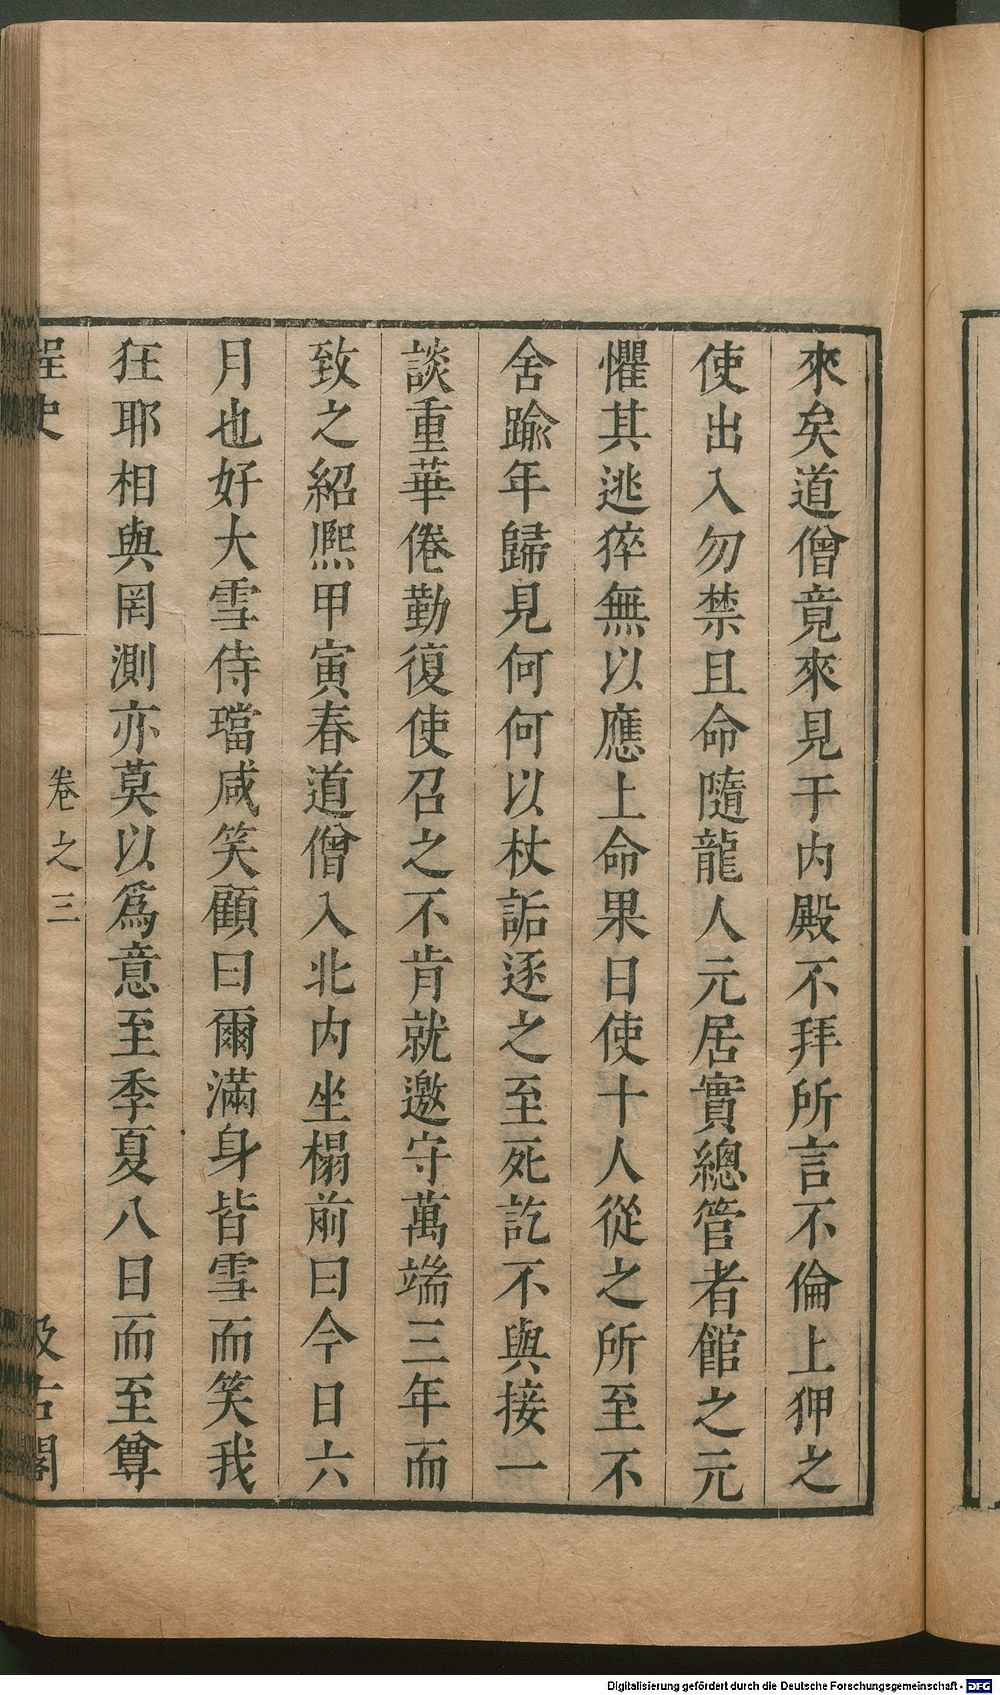 來矣道僧竟來見于内殿不拜所言不倫上狎之
使出入勿禁且命隨龍人元居實總管者館之元
懼其逃猝無以應上命果日使十人從之所至不
舍踰年歸見何何以杖詬逐之至死訖不與接一
談重華倦勤復使召之不肯就邀守萬端三年而
致之紹熈甲寅春道僧入北内坐榻前曰今日六
月也好大雪侍璫咸笑顧曰爾滿身皆雪而笑我
狂耶相與罔測亦莫以爲意至季夏八日而至尊
桯史 卷之三 汲古閣
Digitalisierung gefördert durch die Deutsche Forschungsgemeinschaft - DFG